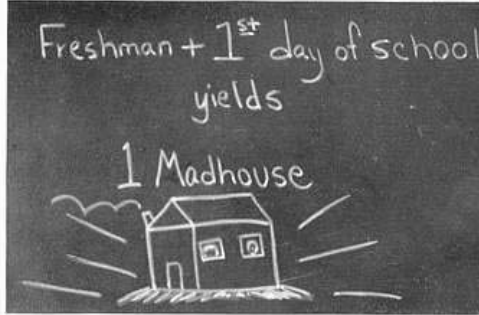 Freshman + 1st day of school
yields
1 Madhouse